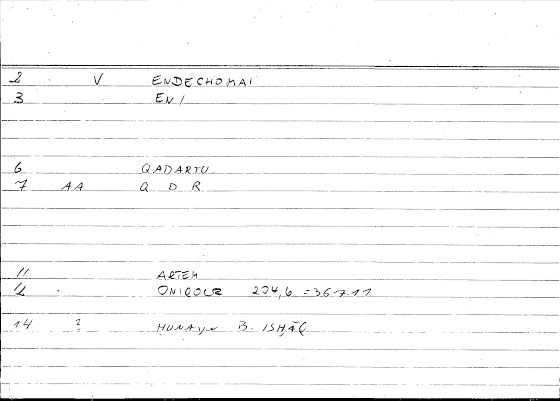 2 V ENDECHOMAI
3 EN1
6 QADARTU
7 AA Q D R
11 ARTEM
12 ONIROCR 204,6 = 367.11
14 ? HUNAyN B. ISHĀQ